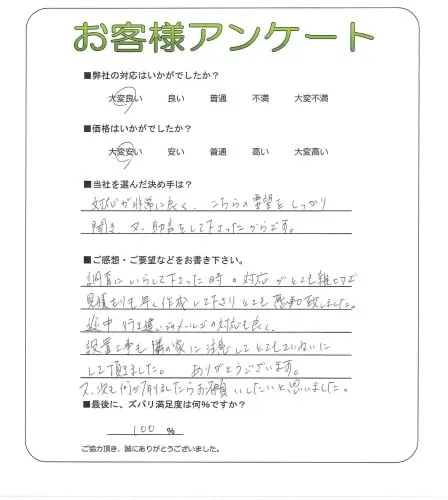 お客様アンケート
■弊社の対応はいかがでしたか？
大変良い 良い 普通 不満 大変不満
■価格はいかがでしたか？
大変安い 安い 普通 高い 大変高い
■当社を選んだ決め手は？
対応が非常に良く、こちらの要望をしっかり
聞き 又、助言をして下さったからです。
■ご感想・ご要望などをお書き下さい。
調査にいらして下さった時の対応がとても親切で
見積りも早く作成して下さりとても感謝致しました。
途中、行き違いのメールの対応も良く、
設置工事も隣の家に注意してとてもていねいに
して頂きました。 ありがとうございます。
又、次も何か有りましたらお願いしたいと思いました。
■最後に、ズバリ満足度は何％ですか？
100 ％
ご協力頂き、誠にありがとうございました。